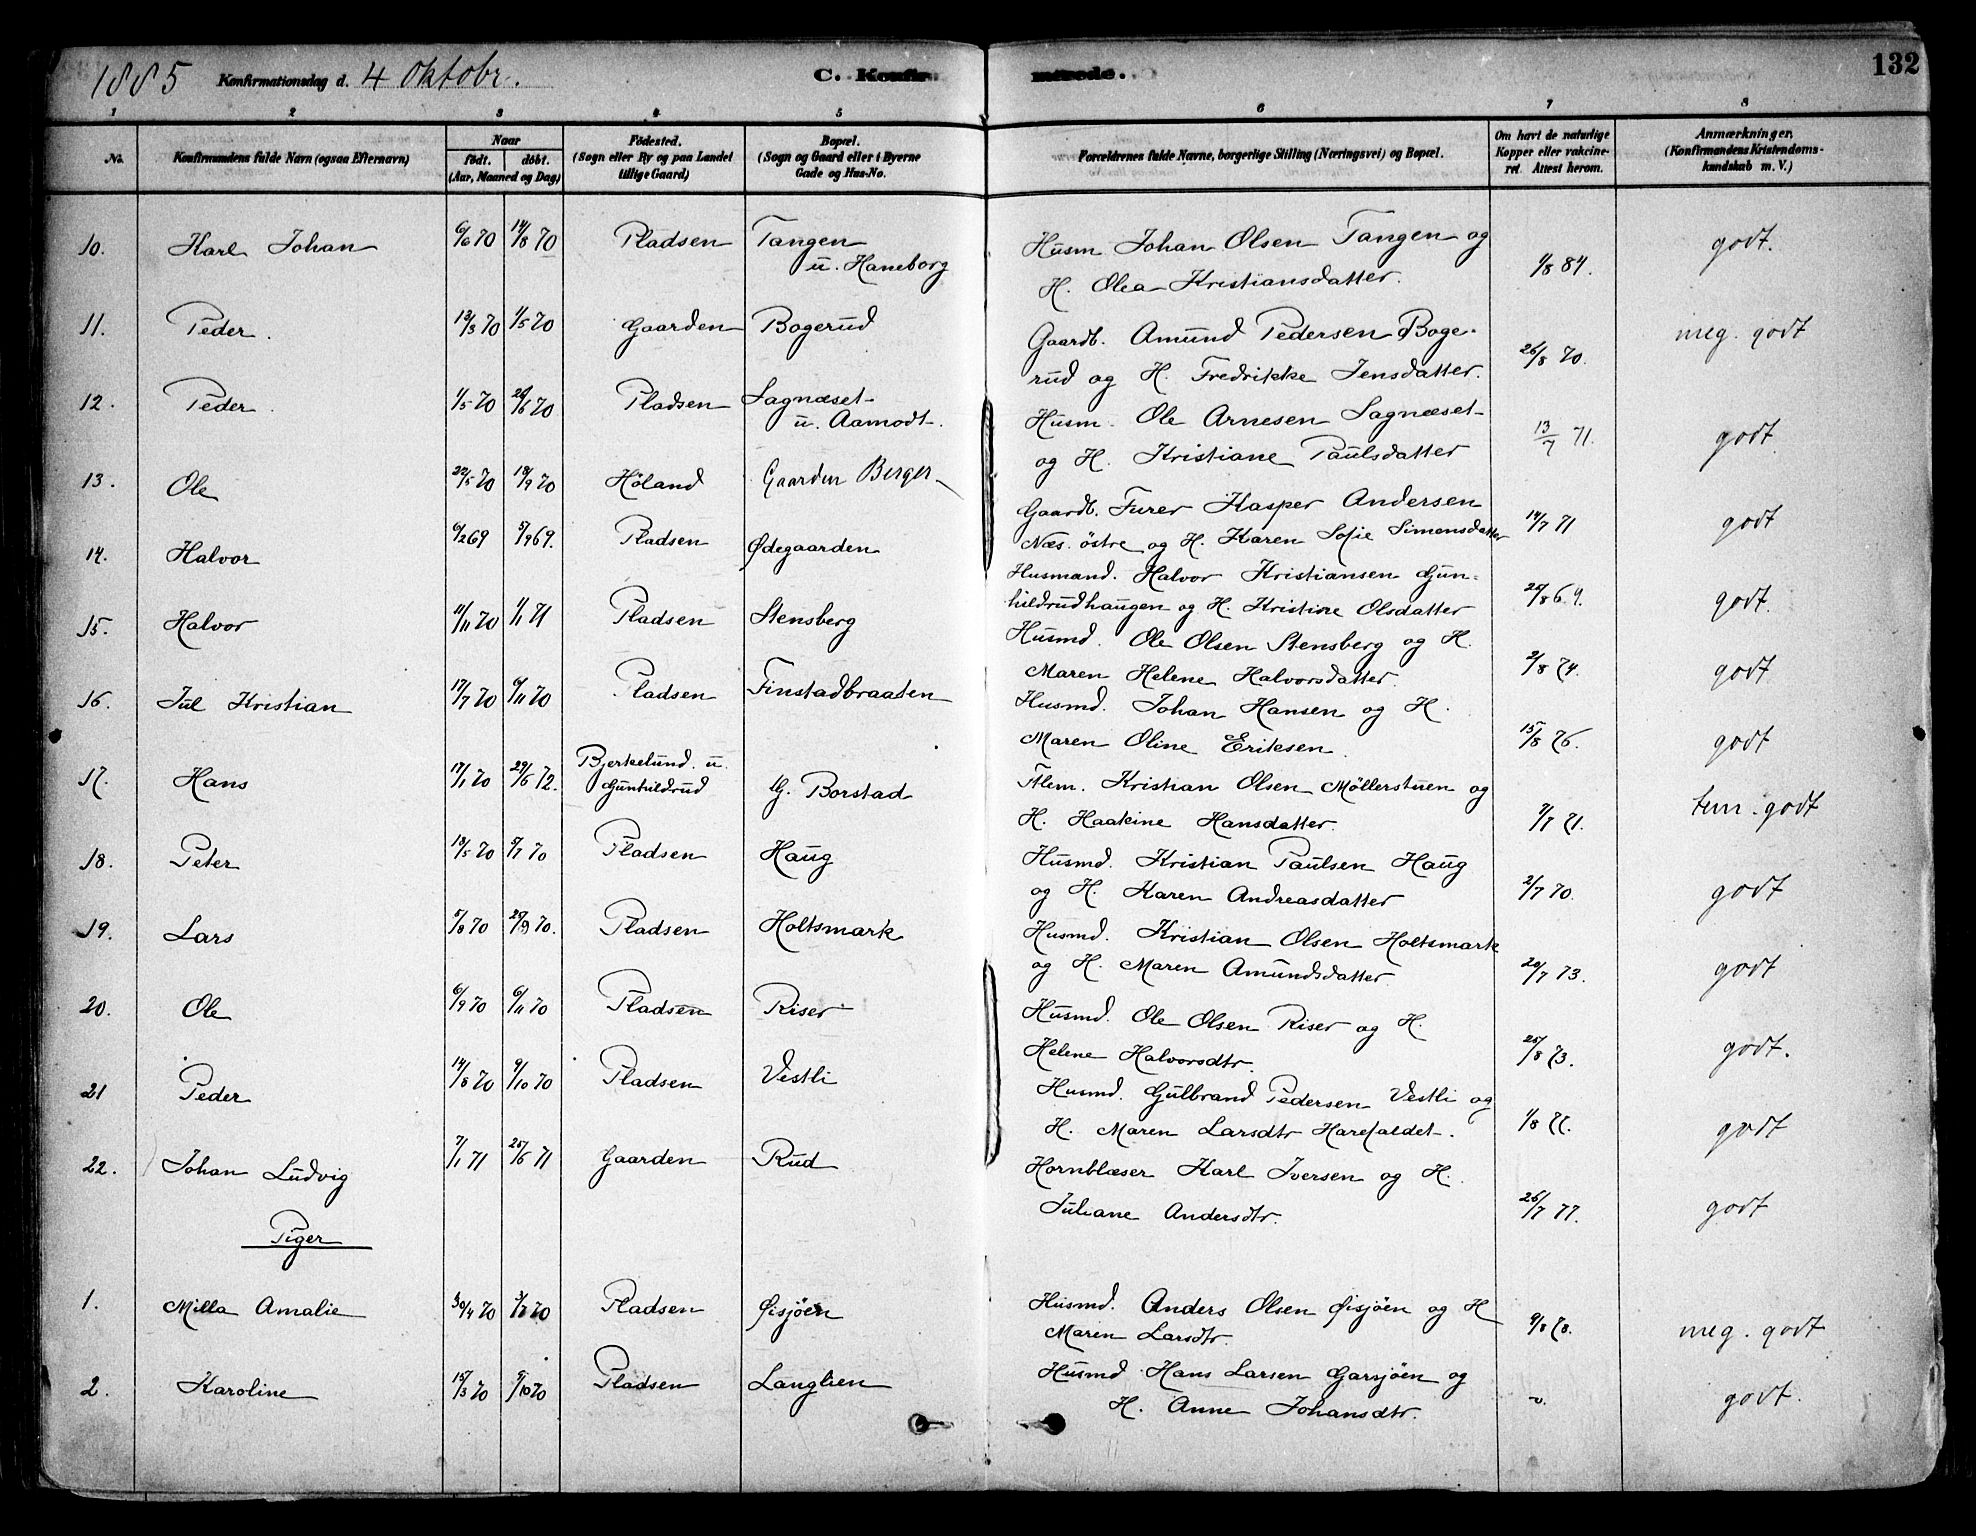 1885 Konfirmationsdag d. 4 Oktobr. C. Konfirmerede. 132
1 2 3 4 5 6 7 8
No. Konfirmandens fulde Navn (ogsaa Efternavn) Naar født. døbt. (Aar, Maaned og Dag) Fødested. (Sogn eller By og paa Landet tillige Gaard) Bopæl. (Sogn og Gaard eller i Byerne Gade og Hus-No. Forældrenes fulde Navne, borgerlige Stilling (Næringsvei) og Bopæl. Om havt de naturlige Kopper eller vakcineret. Attest herom. Anmærkninger. (Konfirmandens Kristendomskundskab m. V.)
10. Karl Johan 6/6 70 14/8 70 Pladsen Tangen u. Haneborg Husm. Johan Olsen Tangen og
H. Olea Kristiansdatter. 1/8 84. godt.
11. Peder. 12/3 70 1/5 70 Gaarden Bogerud Gaardb. Amund Pedersen Boge-
rud og H. Fredrikke Jensdatter. 26/8 70. meg. godt
12. Peder. 1/5 70 26/6 70 Pladsen Sagnæset u. Aamodt. Husm. Ole Arnesen Sagnæset
og H. Kristiane Paulsdatter 13/7 71. godt.
13. Ole 22/5 70 18/9 70 Høland Gaarden Berger Gaardb. Furer Kasper Andersen
Næs. östre og H. Karen Sofie Simensdatter 14/7 71 godt
14. Halvor 6/2 69 5/9 69. Pladsen Ødegaarden Husmand. Halvor Kristiansen Gun-
hildrudhaugen og H. Kristine Olsdatter 22/8 69. godt.
15. Halvor 11/11 70 1/1 71 Pladsen Stensberg Husmd. Ole Olsen Stensberg og H.
Maren Helene Halvorsdatter. 2/8 74. godt
16. Jul Kristian 17/7 70 6/11 70 Pladsen Finstadbraaten Husmd. Johan Hansen og H.
Maren Oline Eriksen. 15/8 76. godt
17. Hans 17/1 70 29/6 72. Bjerkelund. u. Gunhildrud G. Borstad Flem. Kristian Olsen Möllerstuen og
H. Haakine Hansdatter. 7/7 71. tem. godt
18. Peter 13/5 70 9/7 70 Pladsen Haug Husmd. Kristian Paulsen Haug
og H. Karen Andreasdatter 2/7 70. godt
19. Lars 5/8 70 25/9 70. Pladsen Holtsmark Husmd. Kristian Olsen Holtsmark
og H. Maren Amundsdatter. 20/7 73. godt
20. Ole 6/9 70 6/11 70 Pladsen Riser Husmd. Ole Olsen Riser og H.
Helene Halvorsdtr. 25/8 73. godt.
21 Peder 14/8 70 9/10 70 Pladsen Vestli Husmd. Gulbrand Pedersen Vestli og
H. Maren Larsdtr Harefaldet. 1/8 77. godt
22. Johan Ludvig 7/1 71 25/6 71 Gaarden Rud Hornblæser Karl Iversen og H.
Juliane Andersdtr. 26/7 77. godt
Piger
1. Milla Amalie 30/4 70 3/7 70 Pladsen Øisjöen Husmd. Anders Olsen Øisjöen og H
Maren Larsdtr. 9/8 78. meg. godt
2. Karoline 15/3 70 9/10 70 Pladsen Langlien Husmd Hans Larsen Garsjöen og
H. Anne Johansdtr. v. godt.